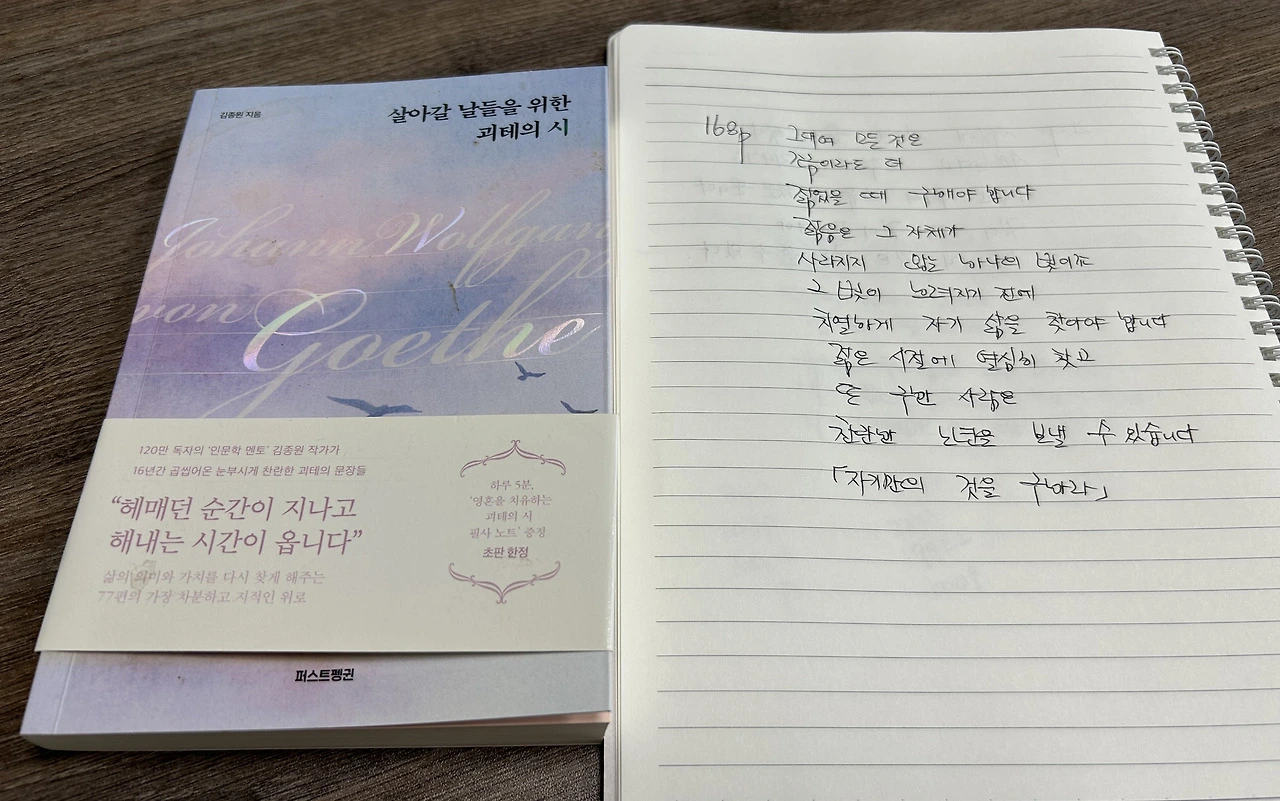 김종원 지음
살아갈 날들을 위한
괴테의 시
Johann Wolfgang
von Goethe
120만 독자의 '인문학 멘토' 김종원 작가가
16년간 곱씹어온 눈부시게 찬란한 괴테의 문장들
“헤매던 순간이 지나고
해내는 시간이 옵니다”
삶의 의미와 가치를 다시 찾게 해주는
77편의 가장 차분하고 지적인 위로
하루 5분,
'영혼을 치유하는
괴테의 시
필사 노트' 증정
초판 한정
퍼스트펭귄
168p 그대여 모든 것은
하루라도 더
젊었을 때 구해야 합니다
젊음은 그 자체가
사라지지 않는 하나의 빛이죠
그 빛이 느려지기 전에
치열하게 자기 삶을 찾아야 합니다
젊은 시절에 열심히 찾고
또 구한 사람은
찬란한 노년을 보낼 수 있습니다
「자기만의 것을 구하라」